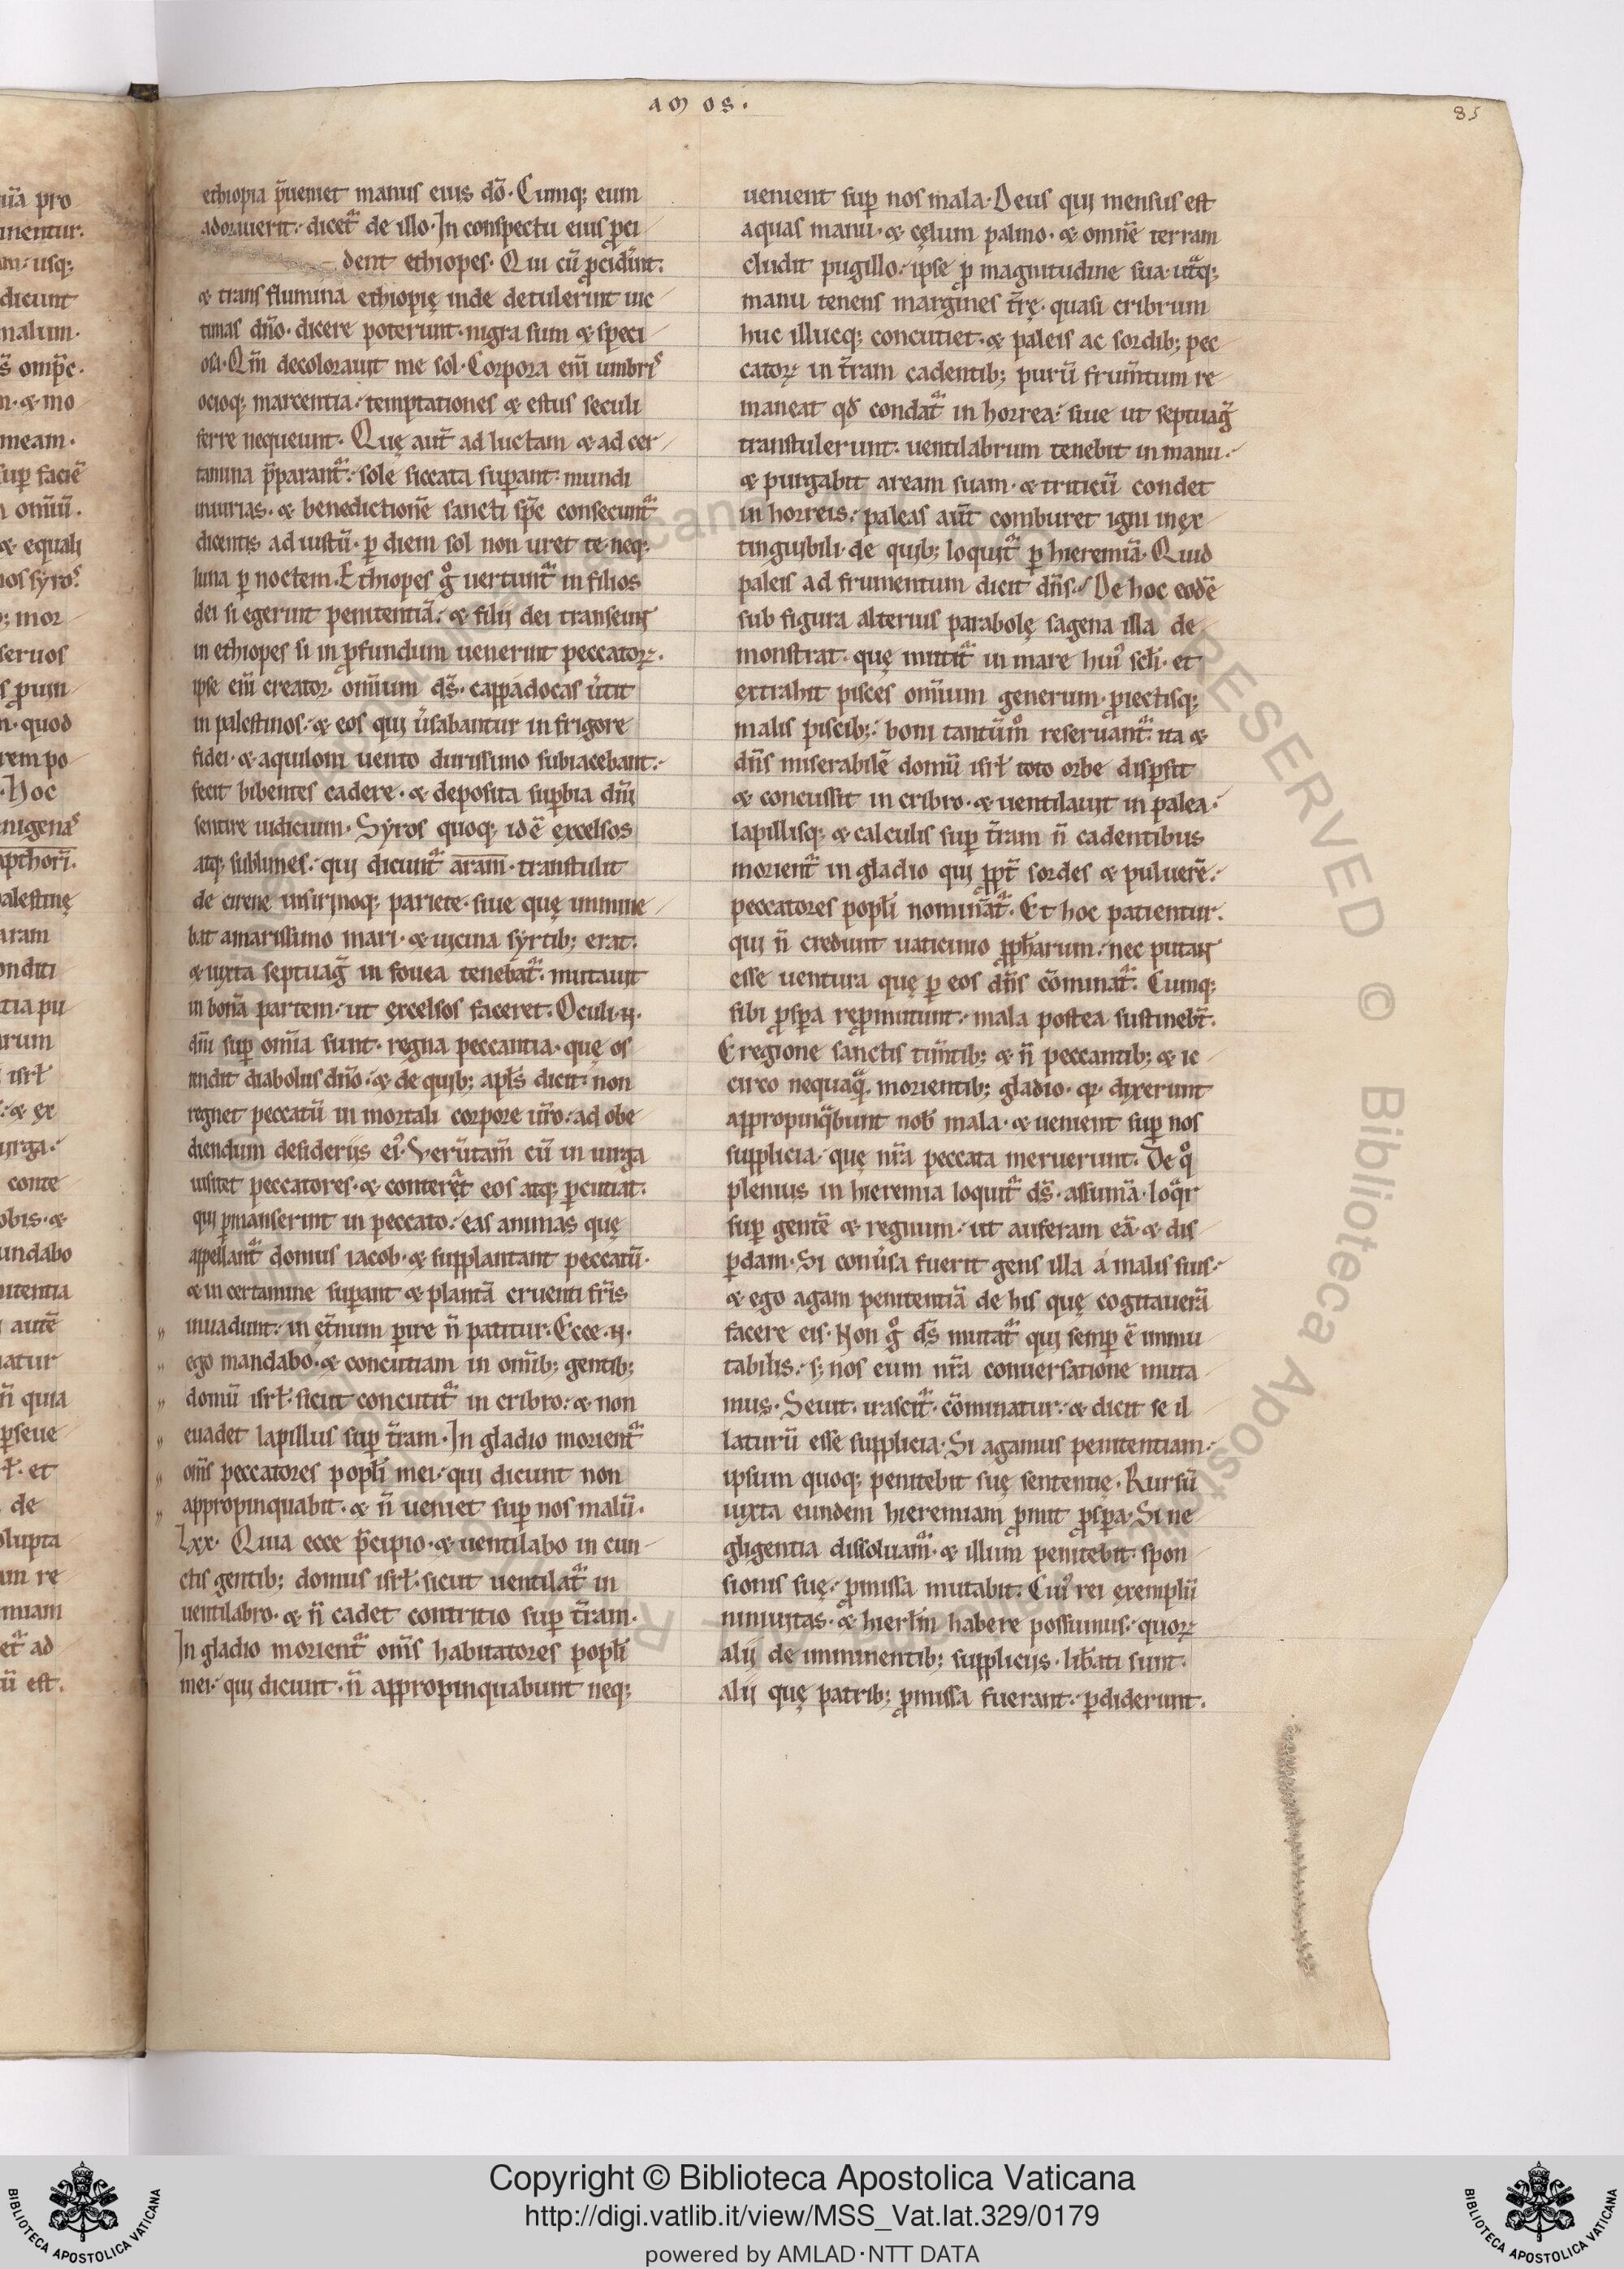 amos.
85
ethiopia p̄ueniet manus eius dō. Cumq; eum
adorauerit: dicet᷑ de illo. In conspectu eius ꝓci
dent ethiopes. Qui cū ꝓcider̄int:
& trans flumina ethiopię inde detulerint uic
timas dn̄o. dicere poterunt. nigra sum & speci
osa. Qm̄ decolorauit me sol. Corpora eni᷑ umbris
ocioq; marcentia: temptationes & estus seculi
ferre nequeunt. Quę aut̄ ad luctam & ad cer
tamina p̄parant᷑: sole siccata suꝑant mundi
iniurias. & benedictionē sancti sp̄c consecunt᷑
dicentis ad iustū. ꝑ diem sol non uret te. neq;
luna ꝑ noctem. Ethiopes gͦ uertunt᷑ in filios
dei si egerint penitentiā: & filij dei transeunt
in ethiopes si in ꝓfundum uenerint peccatoꝝ.
ipse eni᷑ creator omium ds̄. cappadocas u̓tit
in palestinos: & eos qui u̓sabantur in frigore
fidei. & aquiloni uento durissimo subiacebant:
fecit bibentes cadere. & deposita suꝑbia dn̄i
sentire iudicium. Syros quoq; idē excelsos
atq; sublimes: qui dicunt᷑ aram. transtulit
de cirene infirmoq; pariete. siue quę immine
bat amarissimo mari. & uicina syrtib; erat.
& iuxta septuag̃ in fouea tenebat᷑. mutauit
in bonā partem: ut excelsos faceret. Oculi .n.
dn̄i suꝑ omīa sunt. regna peccantia. quę os
tendit diabolus dn̄o. & de quib; apl̄s dicit: non
regnet peccatū in mortali corpore ur̄o: ad obe
diendum desiderijs ei᷒. Verūtam̄ cū in uirga
uisitet peccatores. & conteret᷑ eos atq; ꝑcutiat:
qui ꝑmanserint in peccato: eas animas quę
appellant᷑ domus iacob. & supplantant peccatū.
& in certamine suꝑant & plantā cruenti fr̄is
inuadunt: in et̄num ꝑire n̄ patitur. Ecce .n.
ego mandabo. & concutiam in omīb; gentib;
domū isrł. sicut concutit᷑ in cribro: & non
cadet lapillus suꝑ t̄ram. In gladio morient᷑
om̄s peccatores popłi mei. qui dicunt non
appropinquabit. & n̄ ueniet suꝑ nos malū.
Lxx. Quia ecce p̄cipio. & uentilabo in cun
ctis gentib; domus isrł. sicut uentilat᷑ in
uentilabro. & n̄ cadet contritio suꝑ t̄ram.
In gladio morient᷑ om̄s habitatores popłi
mei. qui dicunt. n̄ appropinquabunt neq;
uenient suꝑ nos mala. Deus qui mensus est
aquas manu. & cęlum palmo. & omnē terram
cludit pugillo: ipse ꝓ magnitudine sua. utᷓq;
manu tenens margines t̄rę. quasi cribrum
huc illucq; concutiet. & paleis ac sordib; pec
catoꝝ in t̄ram cadentib; purū frum̄tum re
maneat qd̄ condat᷑ in horrea: siue ut septuag̃
transtulerunt: uentilabrum tenebit in manu.
& purgabit aream suam. & triticū condet
in horreis: paleas aut̄ comburet igni inex
tinguibili. de quib; loquit᷑ ꝑ hieremiā. Quid
paleis ad frumentum dicit dn̄s. De hoc eodē
sub figura alterius parabolę sagena illa de
monstrat. quę mittit᷑ in mare hui᷒ scłi. et
extrahit pisces omīum generum. ꝓiectisq;
malis piscib;: boni tantūmͦ reseruant᷑. ita &
dn̄s miserabilē domū isrł toto orbe disꝑsit
& concussit in cribro. & uentilauit in palea.
lapillisq; & calculis suꝑ t̄ram n̄ cadentibus
morient᷑ in gladio qui ꝓpt̄ sordes & puluerē:
peccatores popłi nominat᷑. Et hoc patientur.
qui n̄ credunt uaticinio ꝓpħarum: nec putant
esse uentura quę ꝑ eos dn̄s cōminat᷑. Cumq;
sibi ꝓsꝑa reꝓmittunt: mala postea sustinebt̄.
E regione sanctis tim̄tib; & n̄ peccantib; & ic
circo nequaqᷓ. morientib; gladio. qꝛ dixerunt
appropinqᷓbunt nob̄ mala. & uenient suꝑ nos
supplicia. quę nr̄a peccata meruerunt. De qͦ
plenius in hieremia loquit᷑ ds̄. ad summā. loqᷓr
suꝑ gentē & regnum: ut auferam eā. & dis
ꝑdam. Si conu̓sa fuerit gens illa á malis suis.
& ego agam penitentiā de his quę cogitauerā
facere eis. Non gͦ ds̄ mutat᷑ qui semꝑ ē immu
tabilis: s; nos eum nr̄a conuersatione muta
mus. Seuit. irascit᷑. cōminatur: & dicit se il
laturū esse supplicia. Si agamus penitentiam:
ipsum quoq; penitebit suę sententię. Rursū
iuxta eundem hieremiam ꝓmit ꝓsꝑa. Si ne
gligentia dissoluam᷑. & illum penitebit. spon
sionis suę. ꝓmissa mutabit. Cui᷒ rei exemplū
niniuitas. & hierłm habere possumus: quoꝝ
alij de imminentib; supplicijs. lib̄ati sunt.
alij quę patrib; ꝓmissa fuerant: ꝑdiderunt.
Copyright © Biblioteca Apostolica Vaticana
http://digi.vatlib.it/view/MSS_Vat.lat.329/0179
powered by AMLAD·NTT DATA